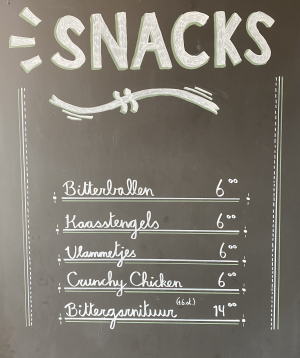 SNACKS
Bitterballen 6°°
Kaasstengels 6°°
Vlammetjes 6°°
Crunchy Chicken 6°°
Bittergarnituur (16 st) 14°°